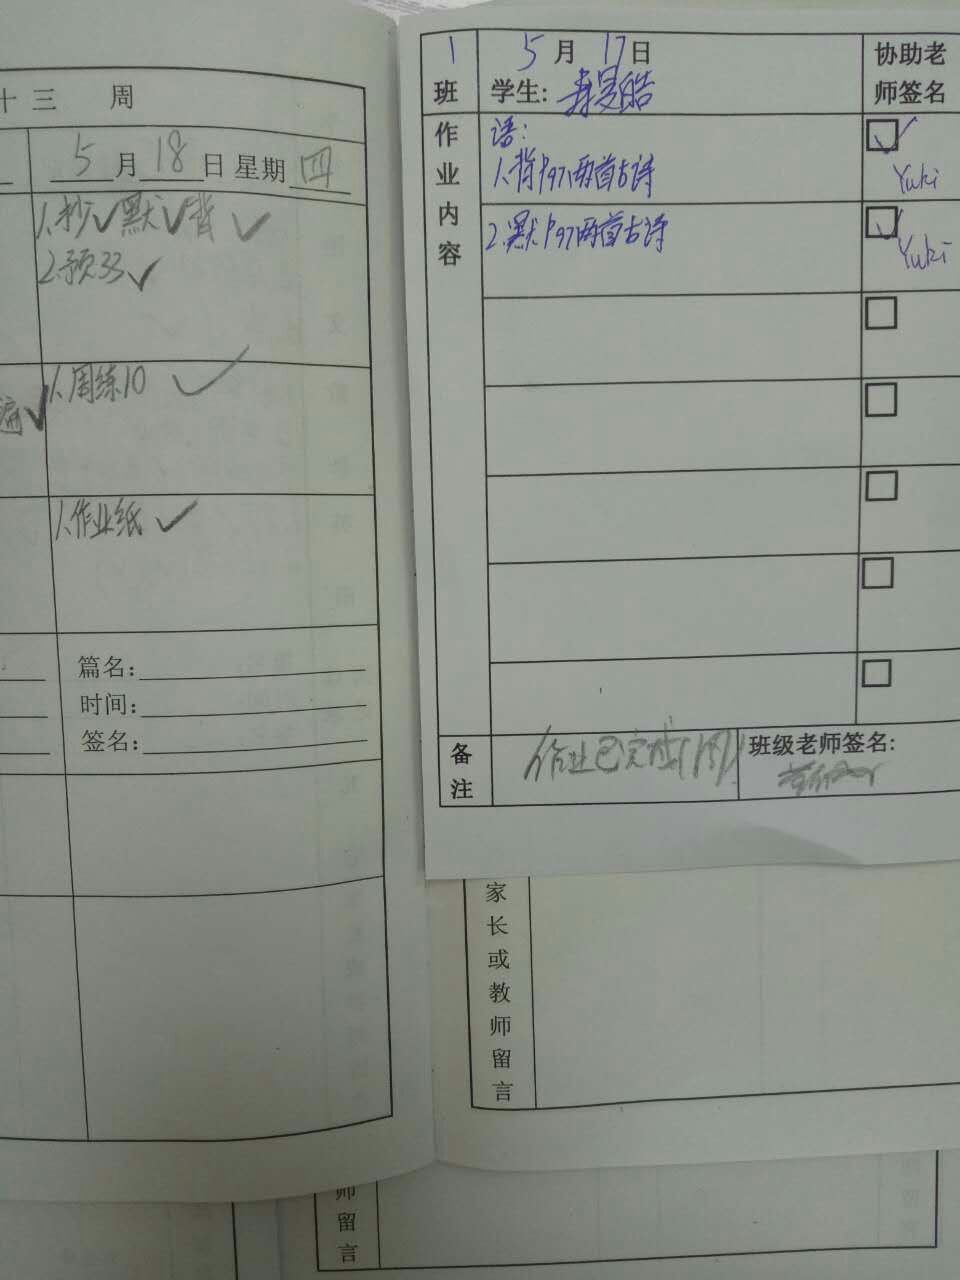 十三 周
5月18日 星期四
1.抄✓默✓背✓
2.预33✓
遍✓
1.周练10 ✓
1.作业纸 ✓
篇名:
时间:
签名:
1班
5月17日
学生:
协助老师签名
作业内容
语:
1.背P97两首古诗
Yuki
2.默P97两首古诗
Yuki
备注
作业已完成
班级老师签名:
家长或教师留言
师留言